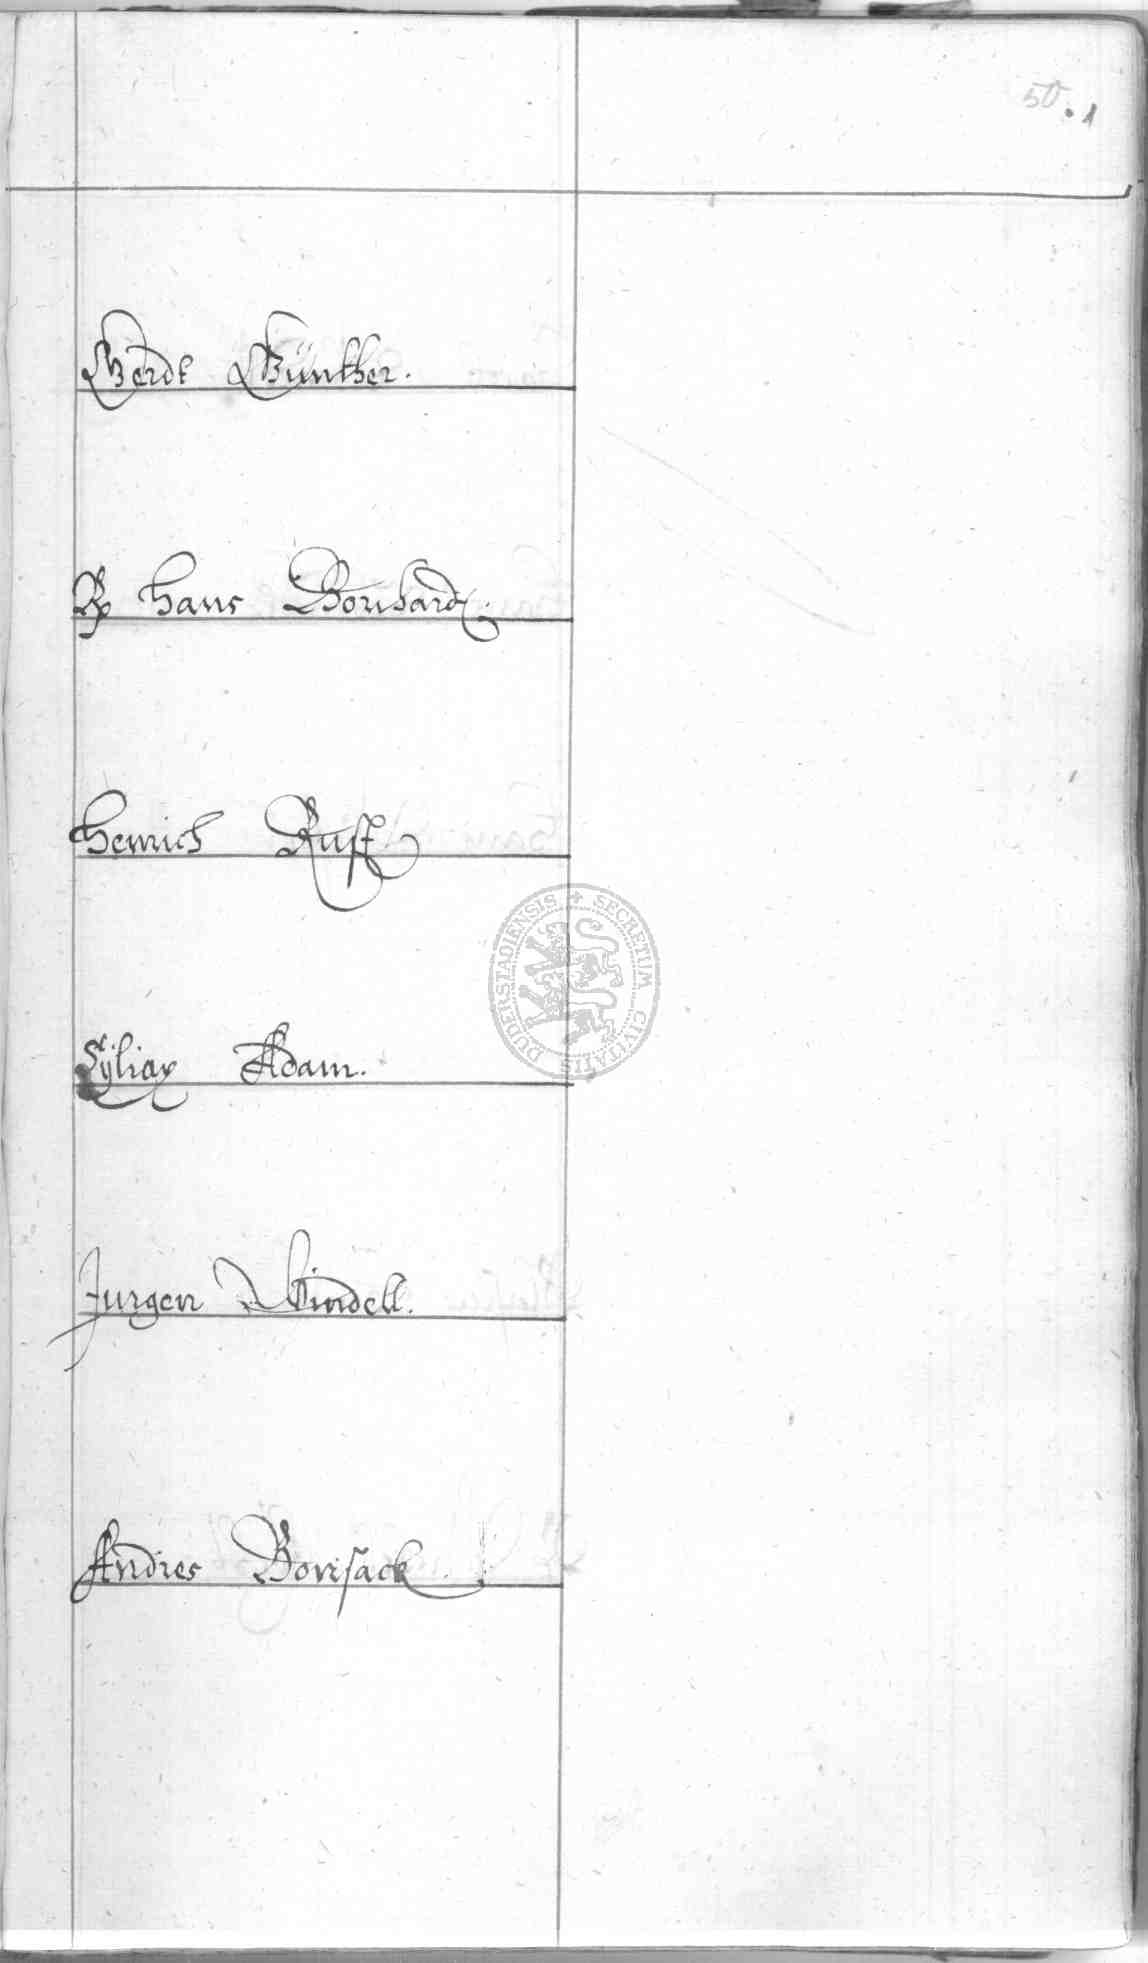 50.1
Gerdt Günther.
Hans Bonhard.
Henrich Rust
Zÿliax Adam.
Jurgen Windell.
Andres Bonsack
SECRETUM CIVITATIS DUDERSTADIENSIS